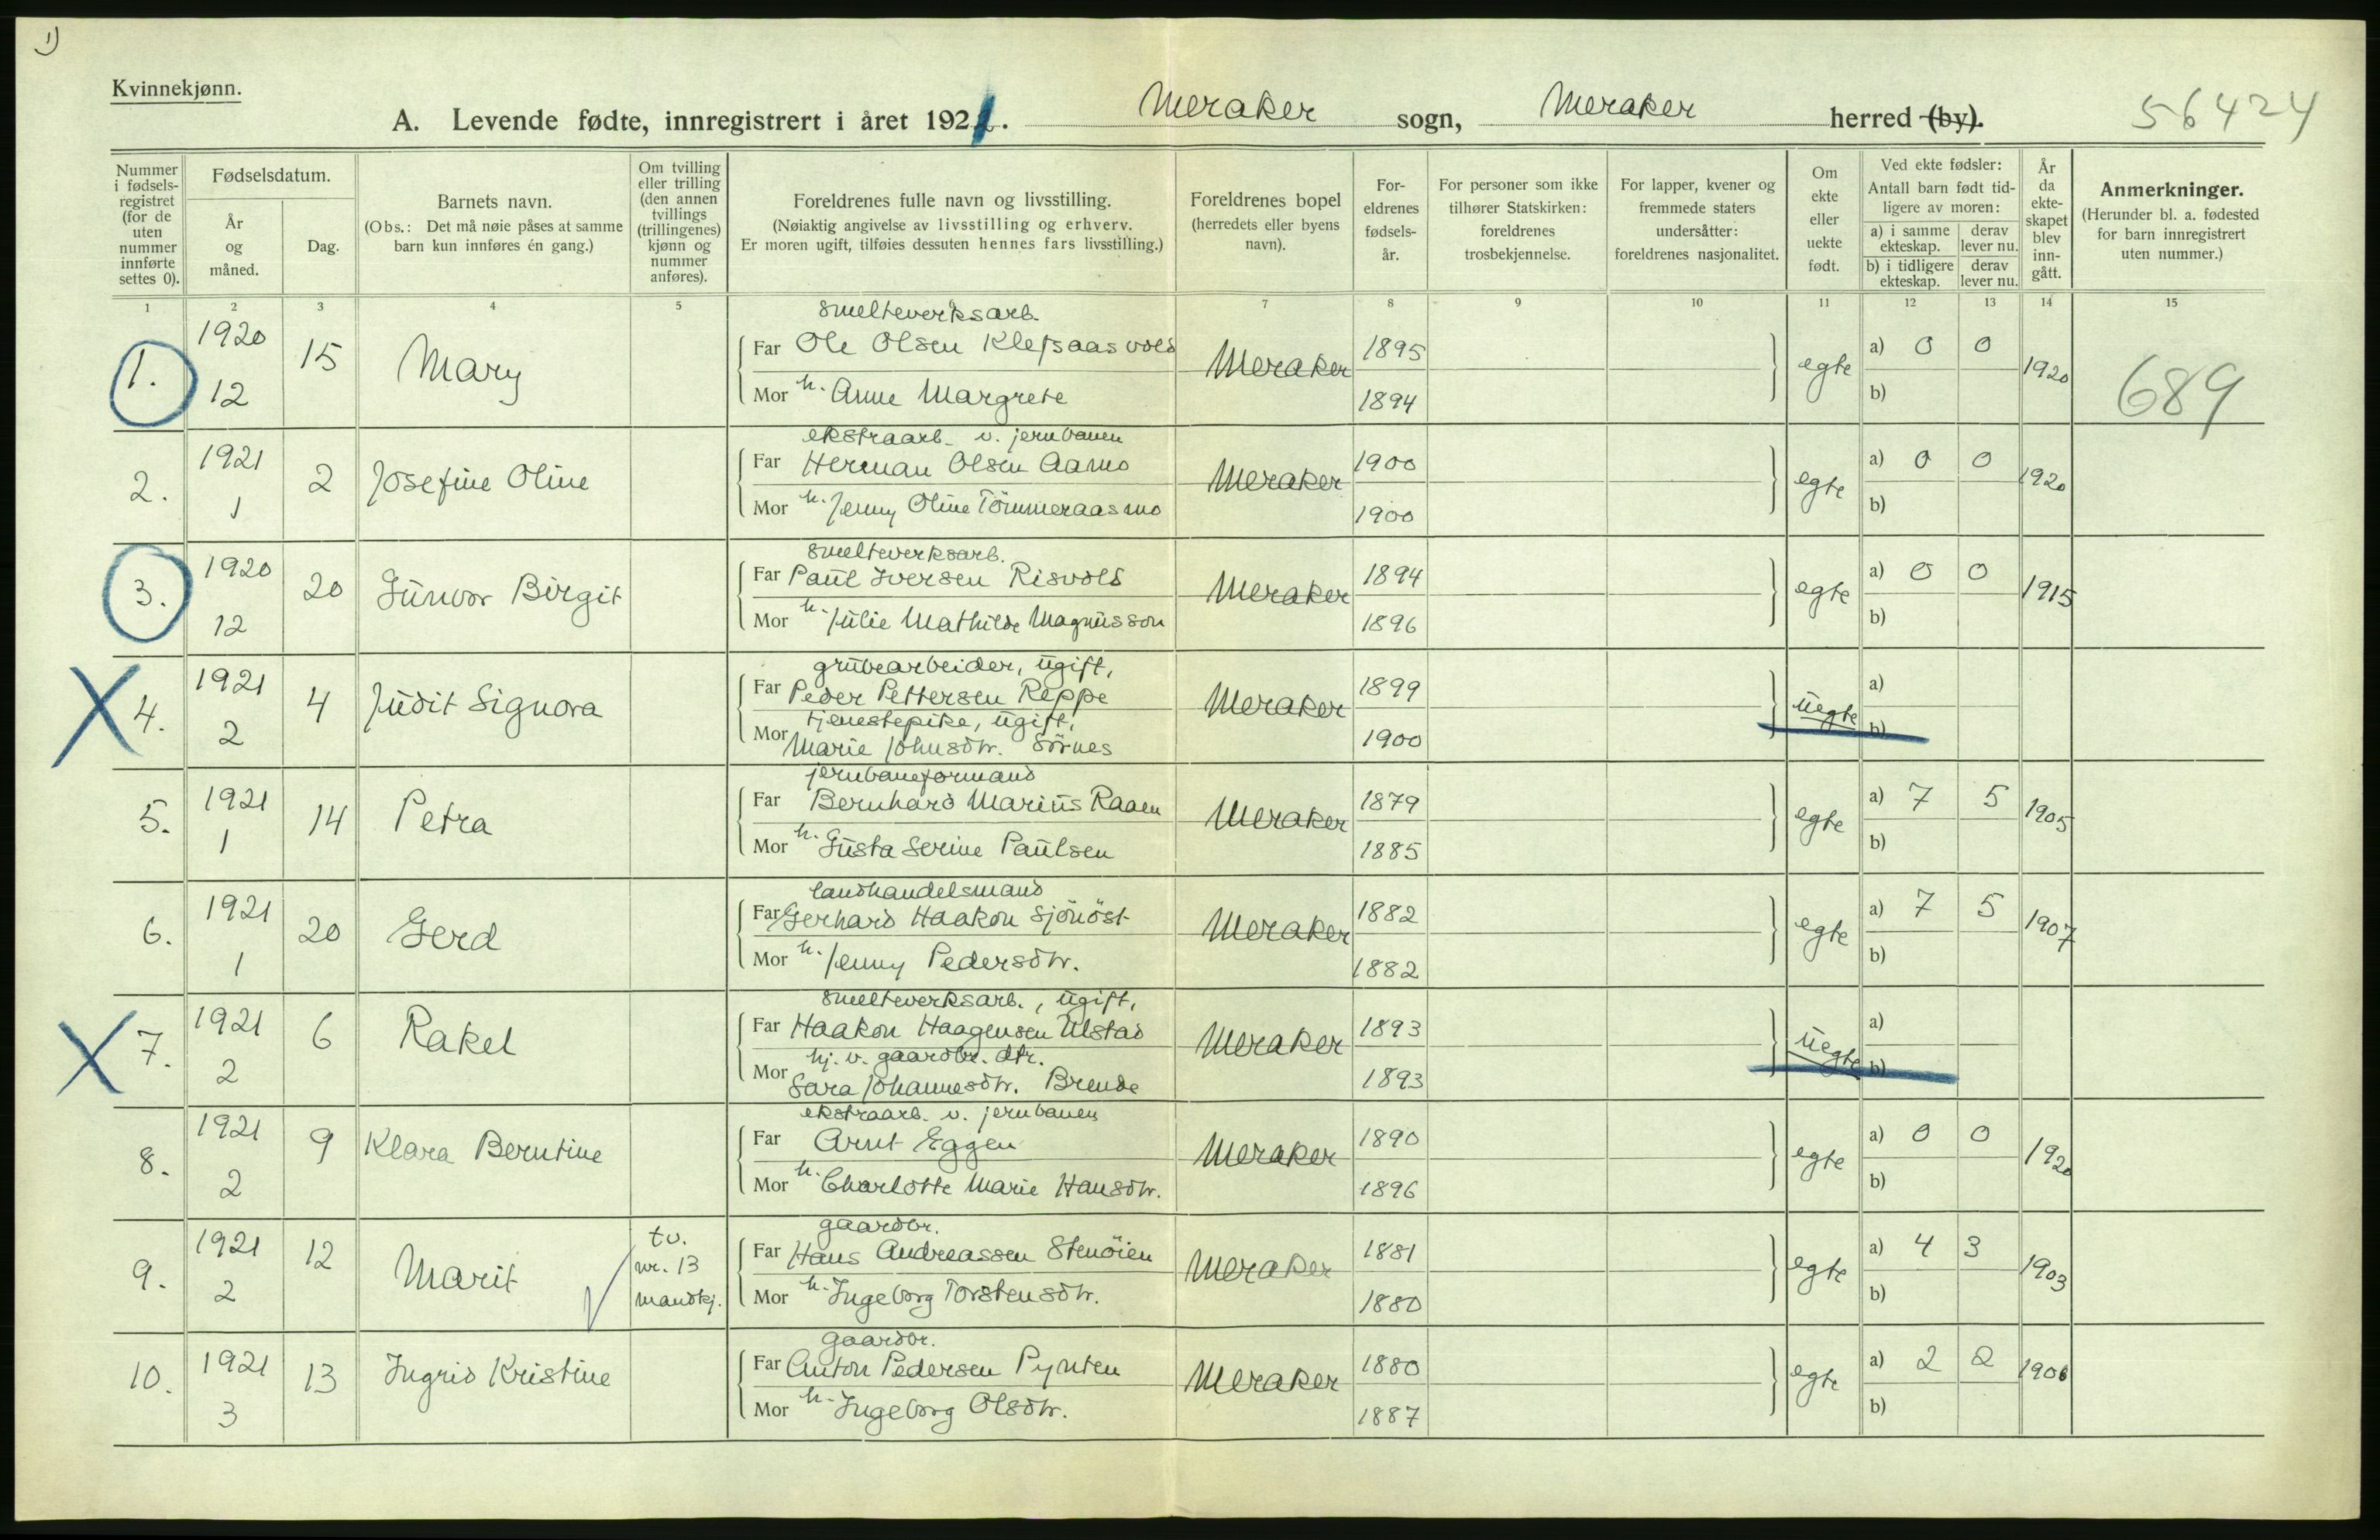 1)
Kvinnekjønn.
A. Levende fødte, innregistrert i året 1921. Meraker sogn, Meraker herred (by). 56424
Nummer i fødselsregistret (for de uten nummer innførte settes 0).
Fødselsdatum.
År og måned.
Dag.
Barnets navn.
(Obs.: Det må nøie påses at samme barn kun innføres én gang.)
Om tvilling eller trilling (den annen tvillings (trillingenes) kjønn og nummer anføres).
Foreldrenes fulle navn og livsstilling.
(Nøiaktig angivelse av livsstilling og erhverv.
Er moren ugift, tilføies dessuten hennes fars livsstilling.)
Foreldrenes bopel
(herredets eller byens navn).
Foreldrenes fødselsår.
For personer som ikke tilhører Statskirken: foreldrenes trosbekjennelse.
For lapper, kvener og fremmede staters undersåtter: foreldrenes nasjonalitet.
Om ekte eller uekte født.
Ved ekte fødsler:
Antall barn født tidligere av moren:
a) i samme ekteskap.
derav lever nu.
b) i tidligere ekteskap.
derav lever nu.
År da ekteskapet blev inngått.
Anmerkninger.
(Herunder bl. a. fødested for barn innregistrert uten nummer.)
1 2 3 4 5 7 8 9 10 11 12 13 14 15
smelteverksarb.
1. 1920 12 15 Mary Far Ole Olsen Klefsaasvold Meraker 1895 egte a) 0 0 1920 689
Mor h. Anne Margrete 1894 b)
ekstraarb. v. jernbanen
2. 1921 1 2 Josefine Oline Far Herman Olsen Aamo Meraker 1900 egte a) 0 0 1920
Mor h. Jenny Oline Tömmeraasmo 1900 b)
smelteverksarb.
3. 1920 12 20 Gunvor Birgit Far Paul Iversen Risvold Meraker 1894 egte a) 0 0 1915
Mor h. Julie Mathilde Magnusson 1896 b)
grubearbeider, ugift,
X 4. 1921 2 4 Judit Signora Far Peder Pettersen Reppe Meraker 1899 uegte a)
tjenestepike, ugift,
Mor Marie Johnsdtr. Sörnes 1900 b)
jernbaneformand
5. 1921 1 14 Petra Far Bernhard Marius Raaen Meraker 1879 egte a) 7 5 1905
Mor h. Gusta Serine Paulsen 1885 b)
landhandelsmand
6. 1921 1 20 Gerd Far Gerhard Haakon Sjönöst Meraker 1882 egte a) 7 5 1907
Mor h. Jenny Pedersdtr. 1882 b)
smelteverksarb., ugift,
X 7. 1921 2 6 Rakel Far Haakon Haagensen Ulstad Meraker 1893 uegte a)
hj. v. gaardbr. dtr.
Mor Sara Johannesdtr. Brende 1893 b)
ekstraarb. v. jernbanen
8. 1921 2 9 Klara Berntine Far Arnt Eggen Meraker 1890 egte a) 0 0 1920
Mor h. Charlotte Marie Hansdtr. 1896 b)
gaardbr.
9. 1921 2 12 Marit tv. nr. 13 mandkj. Far Hans Andreassen Stenöien Meraker 1881 egte a) 4 3 1903
Mor h. Ingeborg Torstensdtr. 1880 b)
gaardbr.
10. 1921 3 13 Ingrid Kristine Far Anton Pedersen Pynten Meraker 1880 egte a) 2 2 1906
Mor h. Ingeborg Olsdtr. 1887 b)